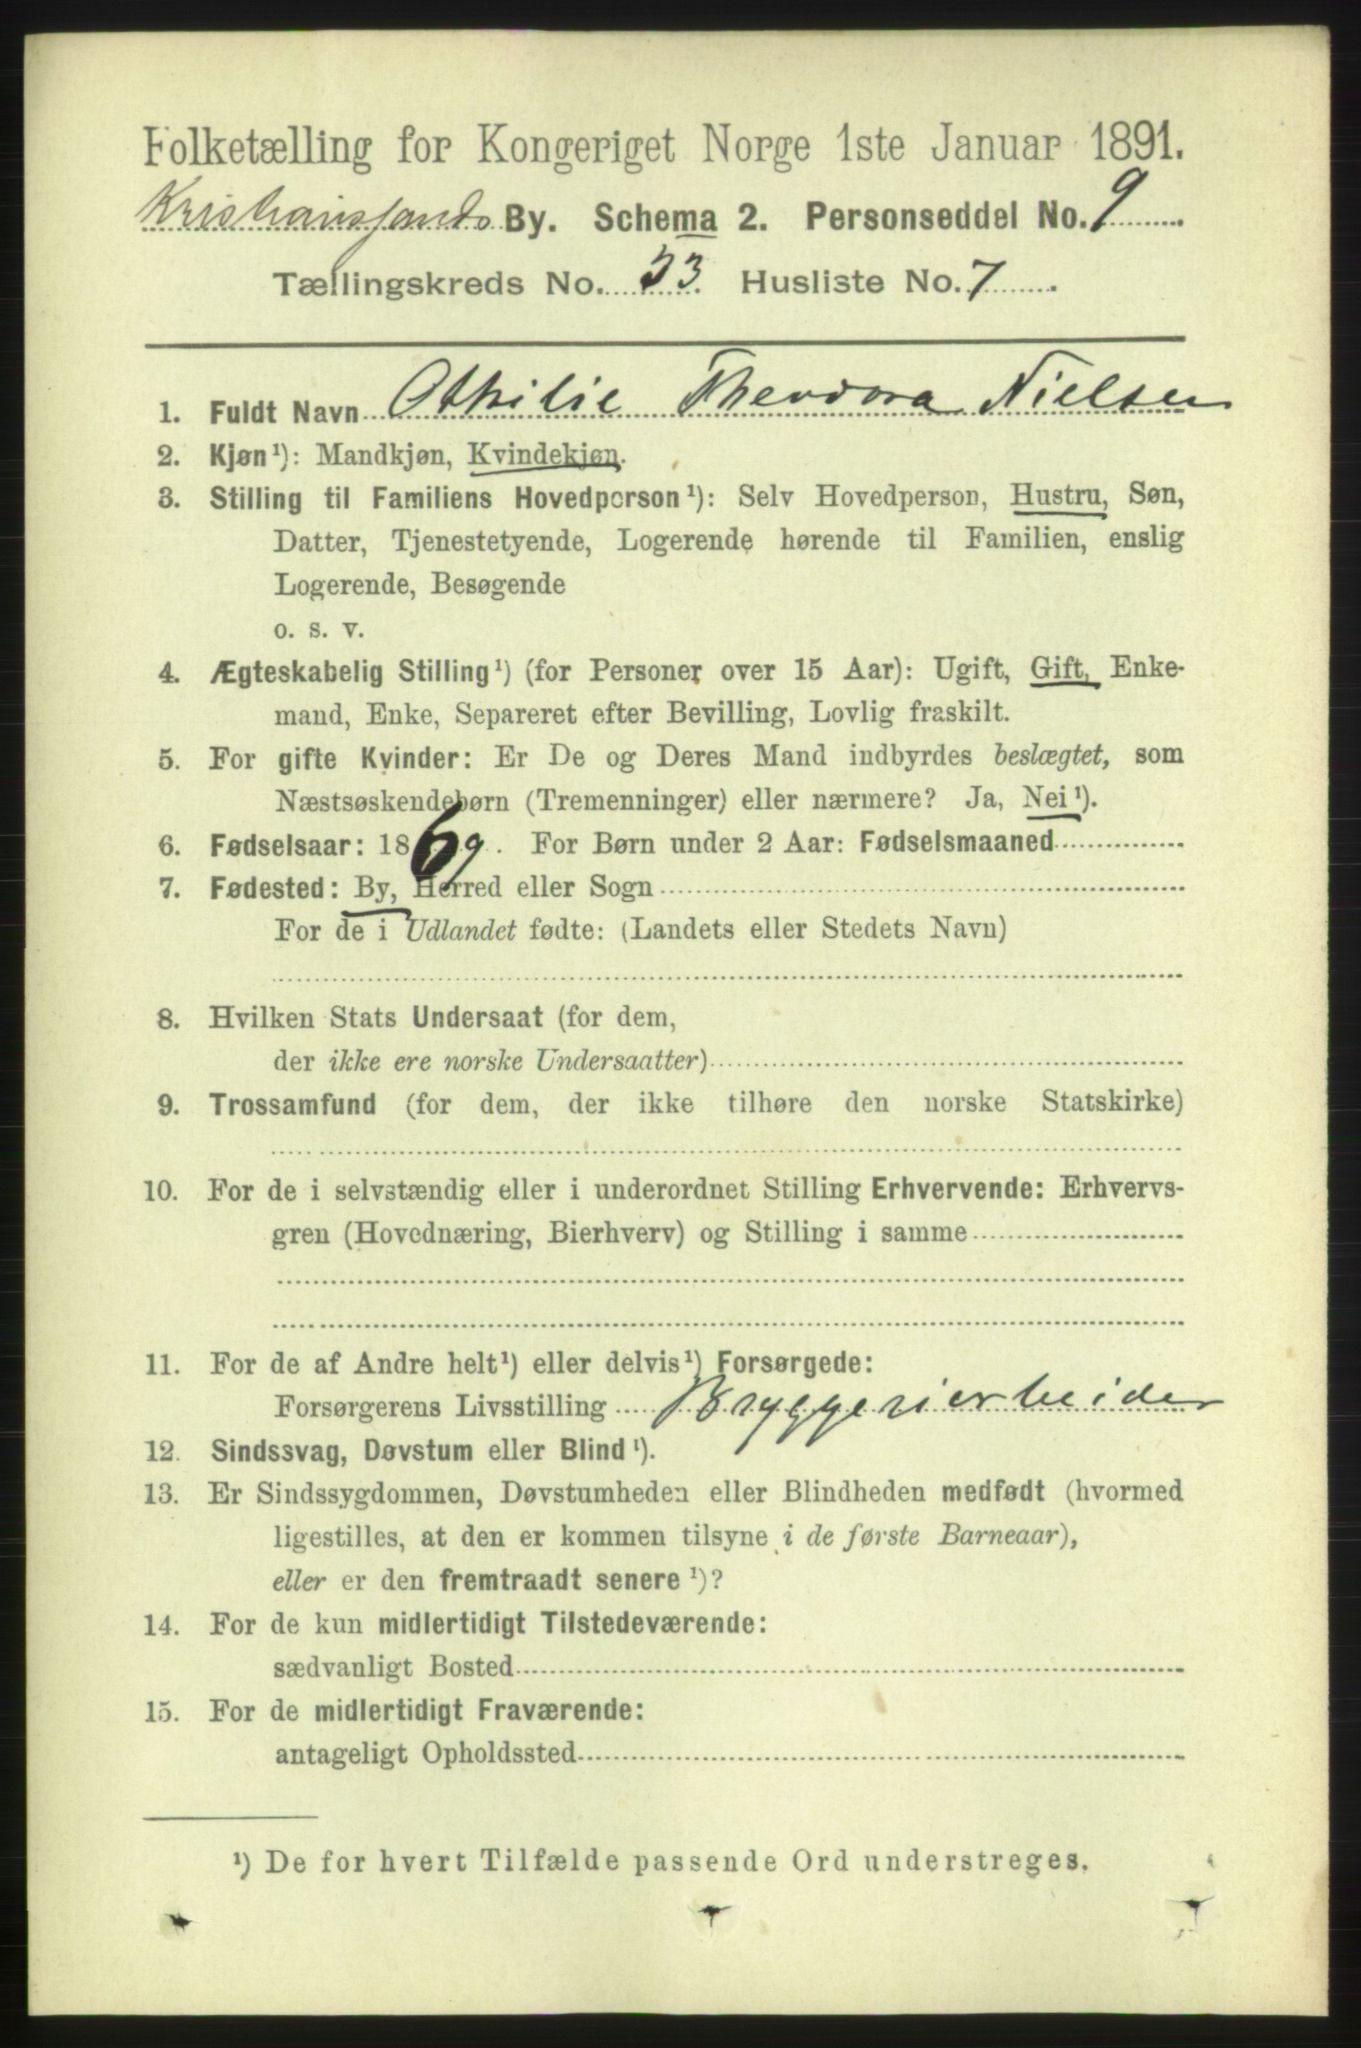 Folketælling for Kongeriget Norge 1ste Januar 1891.
Kristianssands By. Schema 2. Personseddel No. 9
Tællingskreds No. 33 Husliste No. 7
1. Fuldt Navn Othilie Theodora Nielsen
2. Kjøn¹): Mandkjøn, Kvindekjøn.
3. Stilling til Familiens Hovedperson¹): Selv Hovedperson, Hustru, Søn,
Datter, Tjenestetyende, Logerende hørende til Familien, enslig
Logerende, Besøgende
o. s. v.
4. Ægteskabelig Stilling¹) (for Personer over 15 Aar): Ugift, Gift, Enke-
mand, Enke, Separeret efter Bevilling, Lovlig fraskilt.
5. For gifte Kvinder: Er De og Deres Mand indbyrdes beslægtet, som
Næstsøskendebørn (Tremenninger) eller nærmere? Ja, Nei¹).
6. Fødselsaar: 1869. For Børn under 2 Aar: Fødselsmaaned
7. Fødested: By, Herred eller Sogn
For de i Udlandet fødte: (Landets eller Stedets Navn)
8. Hvilken Stats Undersaat (for dem,
der ikke ere norske Undersaatter)
9. Trossamfund (for dem, der ikke tilhøre den norske Statskirke)
10. For de i selvstændig eller i underordnet Stilling Erhvervende: Erhvervs-
gren (Hovednæring, Bierhverv) og Stilling i samme
11. For de af Andre helt¹) eller delvis¹) Forsørgede:
Forsørgerens Livsstilling Bryggeriarbeider
12. Sindssvag, Døvstum eller Blind¹).
13. Er Sindssygdommen, Døvstumheden eller Blindheden medfødt (hvormed
ligestilles, at den er kommen tilsyne i de første Barneaar),
eller er den fremtraadt senere¹)?
14. For de kun midlertidigt Tilstedeværende:
sædvanligt Bosted
15. For de midlertidigt Fraværende:
antageligt Opholdssted
¹) De for hvert Tilfælde passende Ord understreges.